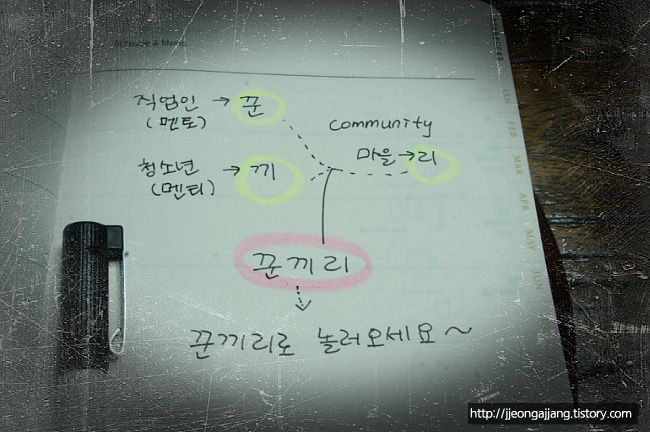 Scribble & Memo
직업인 → 꾼
(멘토)
community
마을 → 리
청소년 → 끼
(멘티)
꾼끼리
꾼끼리로 놀러오세요~
JAN
FEB
MAR
APR
MAY
JUN
http://jjeongajjang.tistory.com